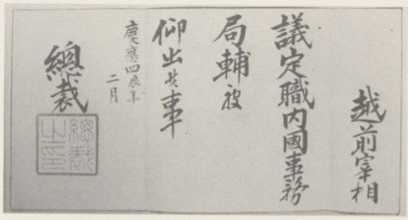 越前宰相
議定職内國事務
局輔被
仰出候事
慶應四辰年
二月
總裁
總裁
之印